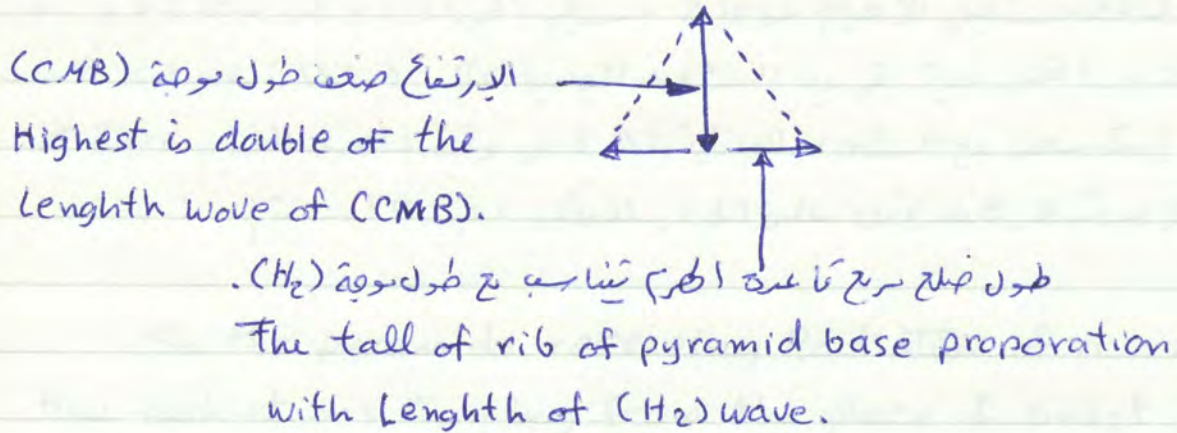 الارتفاع ضعف طول موجة (CMB)
Highest is double of the
Lenghth wove of (CMB).
طول ضلع مربع قاعدة الهرم تتناسب مع طول موجة (H2).
The tall of rib of pyramid base proporation
with Lenghth of (H2) wave.